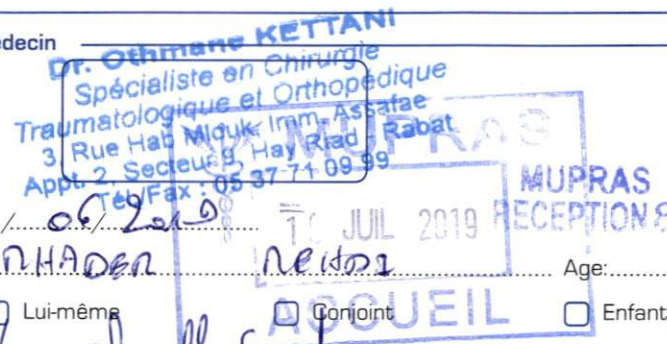 édecin
Dr. Othmane KETTANI
Spécialiste en Chirurgie
Traumatologique et Orthopédique
3, Rue Hab Mlouk, Imm. Assafae
Appt. 2, Secteur 9, Hay Riad - Rabat
Tél/Fax : 05 37 71 09 99
MUPRAS
MUPRAS
RECEPTION
JUIL 2019
ACCUEIL
/ 06 / 2019
Age:
Lui-même Conjoint Enfant